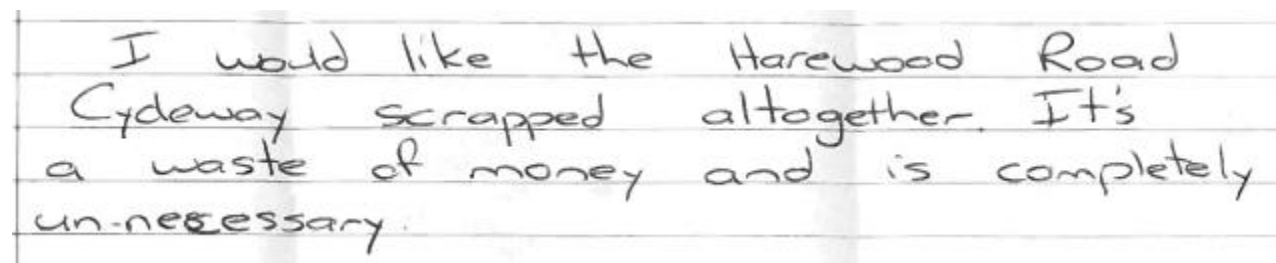 I would like the Harewood Road
Cycleway scrapped altogether. It's
a waste of money and is completely
un-necessary.